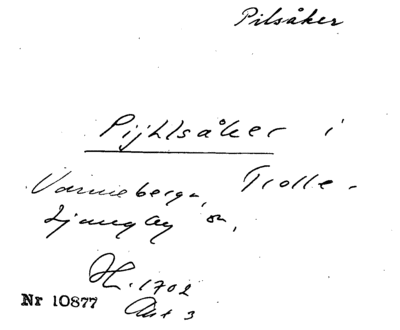 Pilsåker
Pijhlsåker i
Vanneberga, Trolle-
Ljungby sn,
H. 1702
Nr 10877